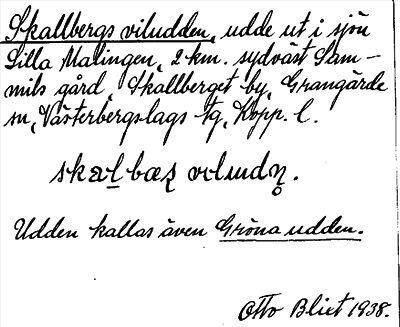 Skallbergs viludden, udde ut i sjön
Lilla Malingen, 2 km. sydväst Sam-
mils gård, Skallberget by, Grangärde
sn, Västerbergslags tg, Kopp. l.
Udden kallas även Gröna udden.
Otto Blixt 1938.